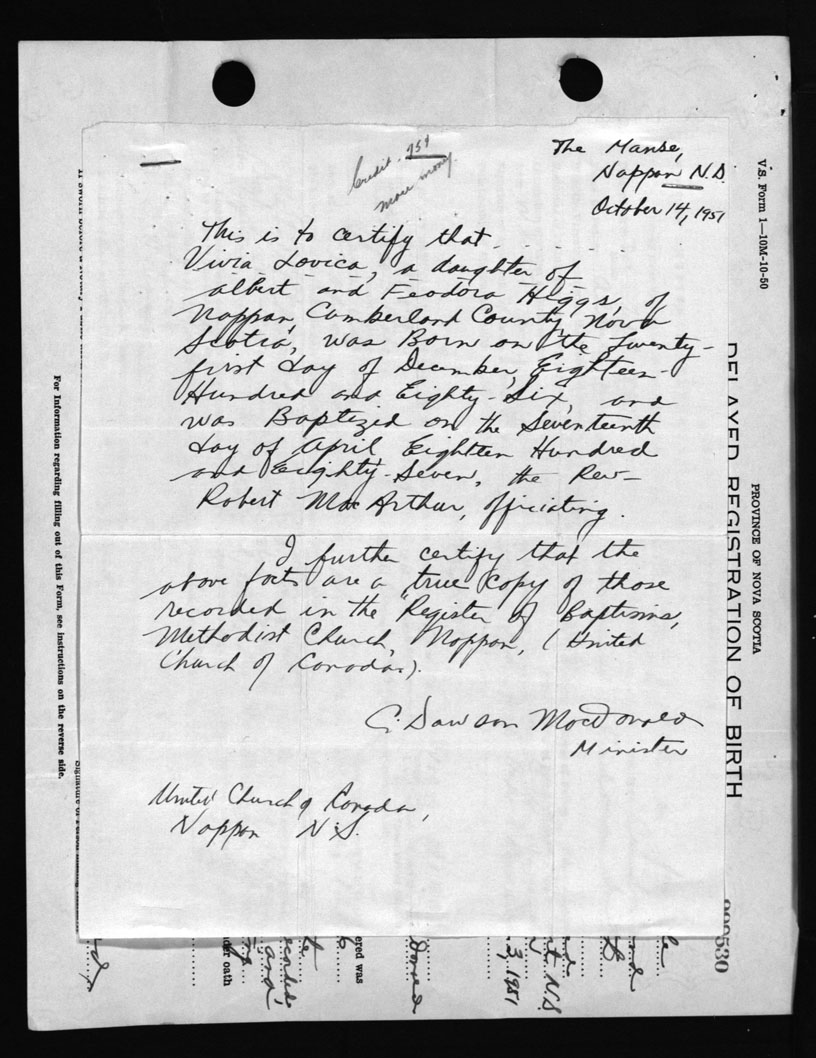 Credit 75¢
more money
The Manse,
Nappan N.S.
October 14, 1951
This is to certify that . . . . .
Vivia Lovica, a daughter of
albert and Feodora Higgs, of
Nappan, Cumberland County, Nova
Scotia, was Born on the Twenty-
first day of December, Eighteen-
Hundred and Eighty-Six, and
was Baptized on the Seventeenth
day of April Eighteen Hundred
and Eighty-Seven, the Rev-
Robert MacArthur, officiating.
I further certify that the
above facts are a true copy of those
recorded in the Register of Baptisms,
Methodist Church, Nappan, (United
Church of Canada).
C. Dawson MacDonald
Minister
United Church of Canada,
Nappan N.S.
V.S. Form 1—10M-10-50
PROVINCE OF NOVA SCOTIA
DELAYED REGISTRATION OF BIRTH
530
N.S.
3, 1951
ered was
der oath
and
For Information regarding filling out of this Form, see instructions on the reverse side.